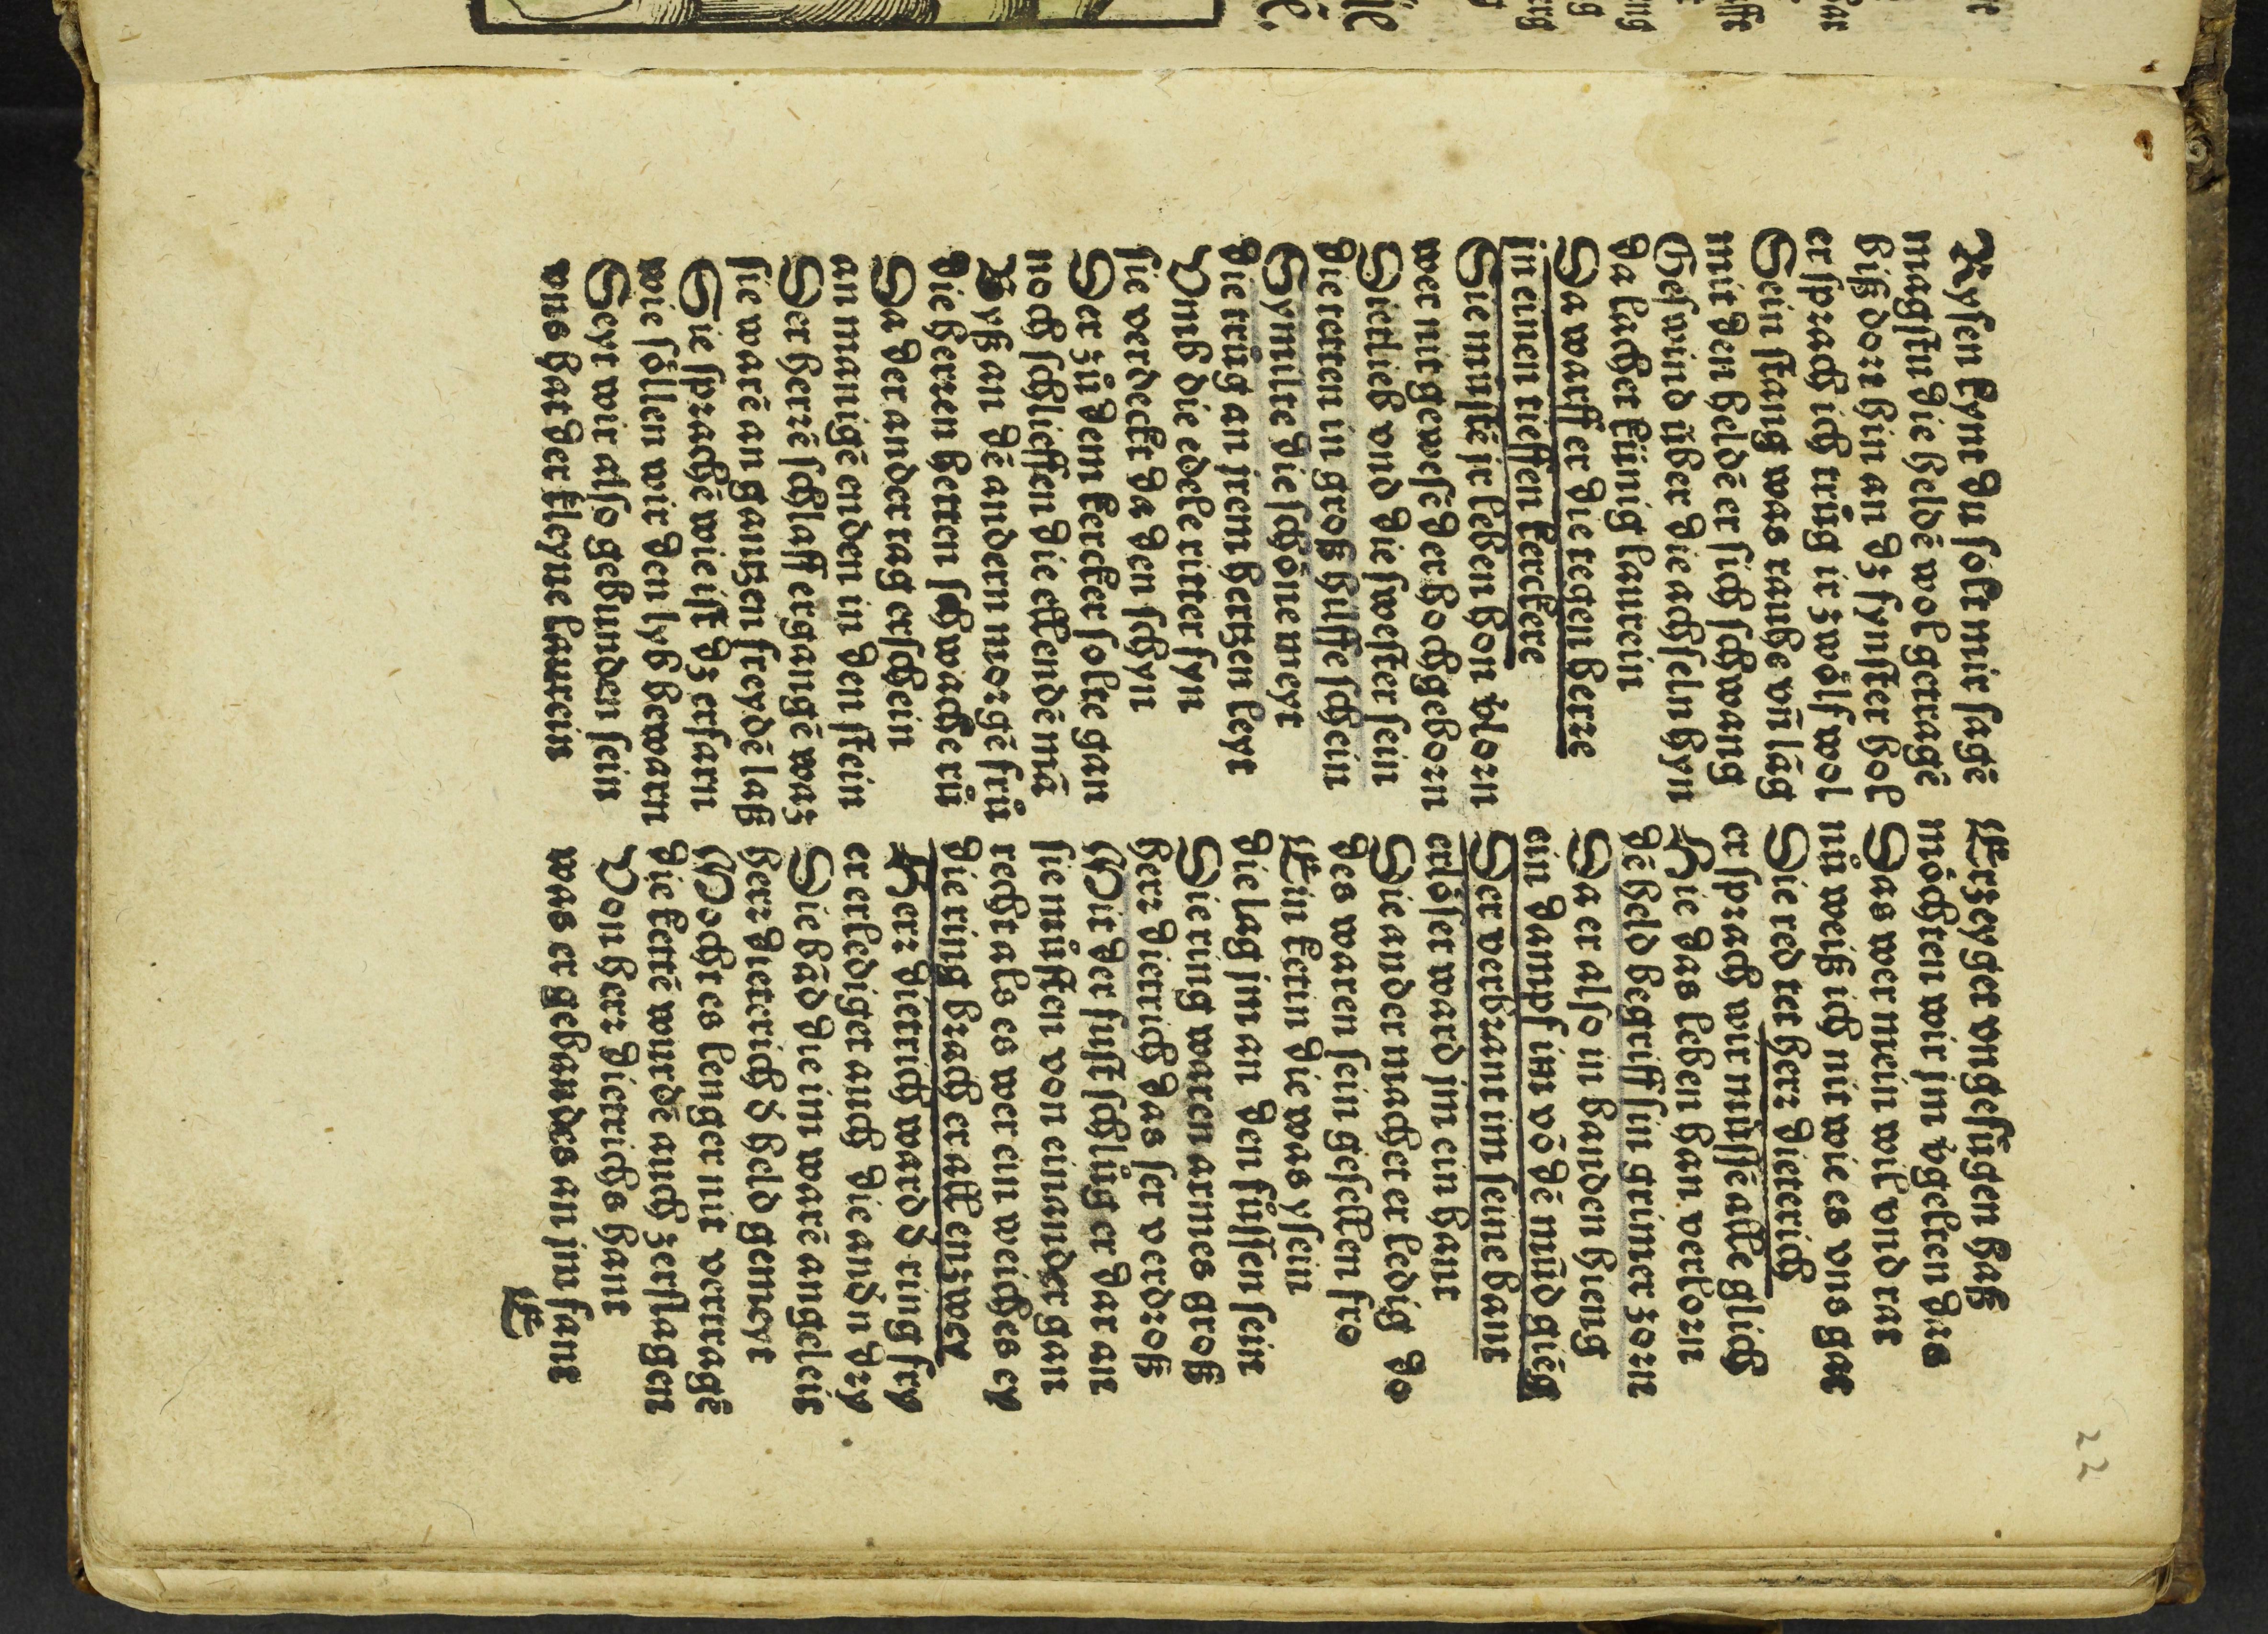 Rysen kynt du solt mir sagē
magstu die heldē wol getragē
biß dort hin an dz fynster hol
er sprach ich trůg ir zwölf wol
Sein stang was rauhe vñ läg
mit den heldē er sich schwang
Geswind über die achseln hyn
da lacher künig laurein
Da warff er die tegen herre
in einen tieffen kerckere
Sie můstē jr leben hon vlorn
wer nit gewesē der hochgeborn
Dietlieb vnd die swester sein
die retten in groß hilffe schein
Symilte die schöne meyt
die trůg an jrem hertzen leyt
Vmb die edele ritter fyn
sie verdeckt da den schyn
Der zů dem kercker solte gan
noch schlieffen die ellendē mā
Byß an dē andern morgē frů
die herren hetten schwache rů
Da der ander tag erschein
an manigē enden in den stein
Der herrē schlaff ergangē waz
sie warē an gantzen freydē laß
Sie sprachē wie ist dz erfarn
wie söllen wir den lyb bewarn
Seyt wir also gebunden sein
vns hat der kleyne laurein
Erzeyget vngefügen haß
möchten wir jm vgelten das
Das wer mein wil vnd rat
nů weiß ich nit wie es vns gat
Die red tet herr dieterich
er sprach wir můssē alle glich
Hie das leben han verlorn
dē held begriff sin grimer zorn
Da er also in banden hieng
ein dampf im vō dē mūd giēg
Der verbrant im seine bant
erlöset ward jm ein hant
Die ander macht er ledig do
des waren sein gesellen fro
Ein ketin die was ysein
die lag jm an den fůssen sein
Die ring waren armes groß
herr dietrich das ser verdroß
Mit der fust schlůg er dar an
sie můsten von einander gan
recht als es wer ein weiches ey
die ring brach er all enzwey
Herr dietrich ward d ring fry
er erlediget auch die andn dry
Die bād die in warē angeleit
herr dieterich d held gemeyt
Mocht es lenger nit vertragē
die kettē wurdē auch zerslagen
Von herr dietrichs hant
was er gebandes an jm fant
E
22